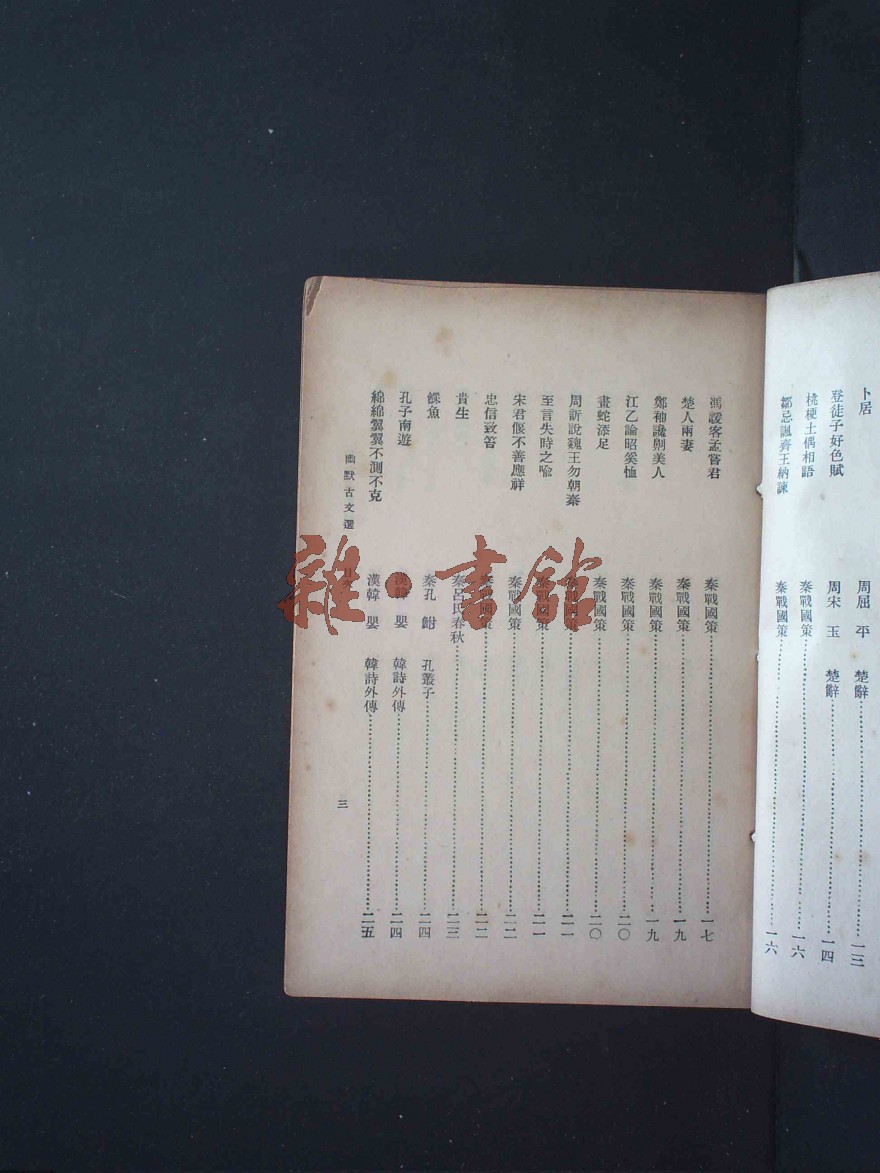 卜居 周屈 平 楚辭 一三
登徒子好色賦 周宋 玉 楚辭 一四
桃梗土偶相語 秦戰國策 一六
鄒忌諷齊王納諫 秦戰國策 一六
馮諼客孟嘗君 秦戰國策 一七
楚人兩妻 秦戰國策 一九
鄭袖讒劓美人 秦戰國策 一九
江乙論昭奚恤 秦戰國策 二〇
畫蛇添足 秦戰國策 二〇
周訢說魏王勿朝秦 秦戰國策 二一
至言失時之喩 秦戰國策 二一
宋君偃不善應祥 秦戰國策 二二
忠信致笞 秦戰國策 二二
貴生 秦呂氏春秋 二三
鰥魚 秦孔 鮒 孔叢子 二四
孔子南遊 漢韓 嬰 韓詩外傳 二四
綿綿翼翼不測不克 漢韓 嬰 韓詩外傳 二五
幽默古文選 目次 三
雜·書館